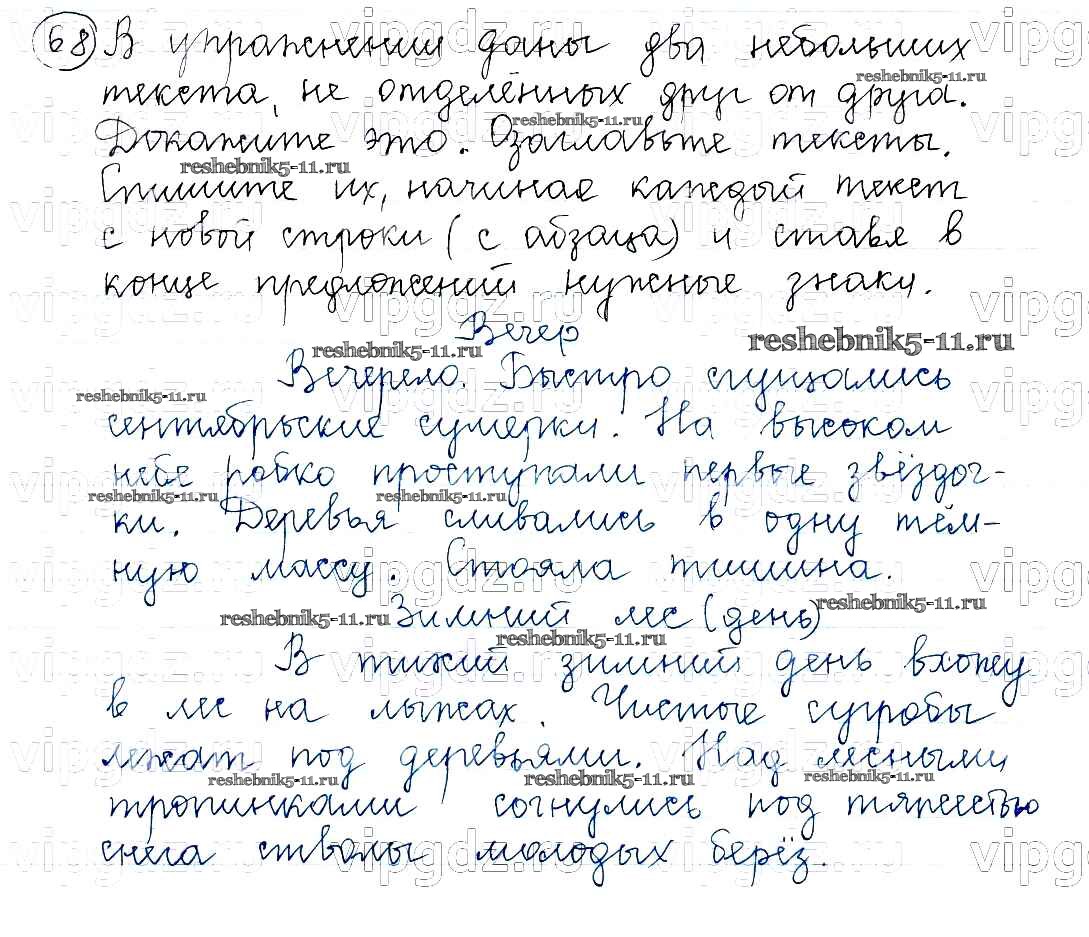 68 В упражнении даны два небольших
текста, не отделённых друг от друга.
Докажите это. Озаглавьте тексты.
Спишите их, начиная каждый текст
с новой строки (с абзаца) и ставя в
конце предложений нужные знаки.
Вечер
Вечерело. Быстро сгущались
сентябрьские сумерки. На высоком
небе робко проступали первые звёздоч-
ки. Деревья сливались в одну тём-
ную массу. Стояла тишина.
Зимний лес (день)
В тихий зимний день вхожу
в лес на лыжах. Чистые сугробы
лежат под деревьями. Над лесными
тропинками согнулись под тяжестью
снега стволы молодых берёз.